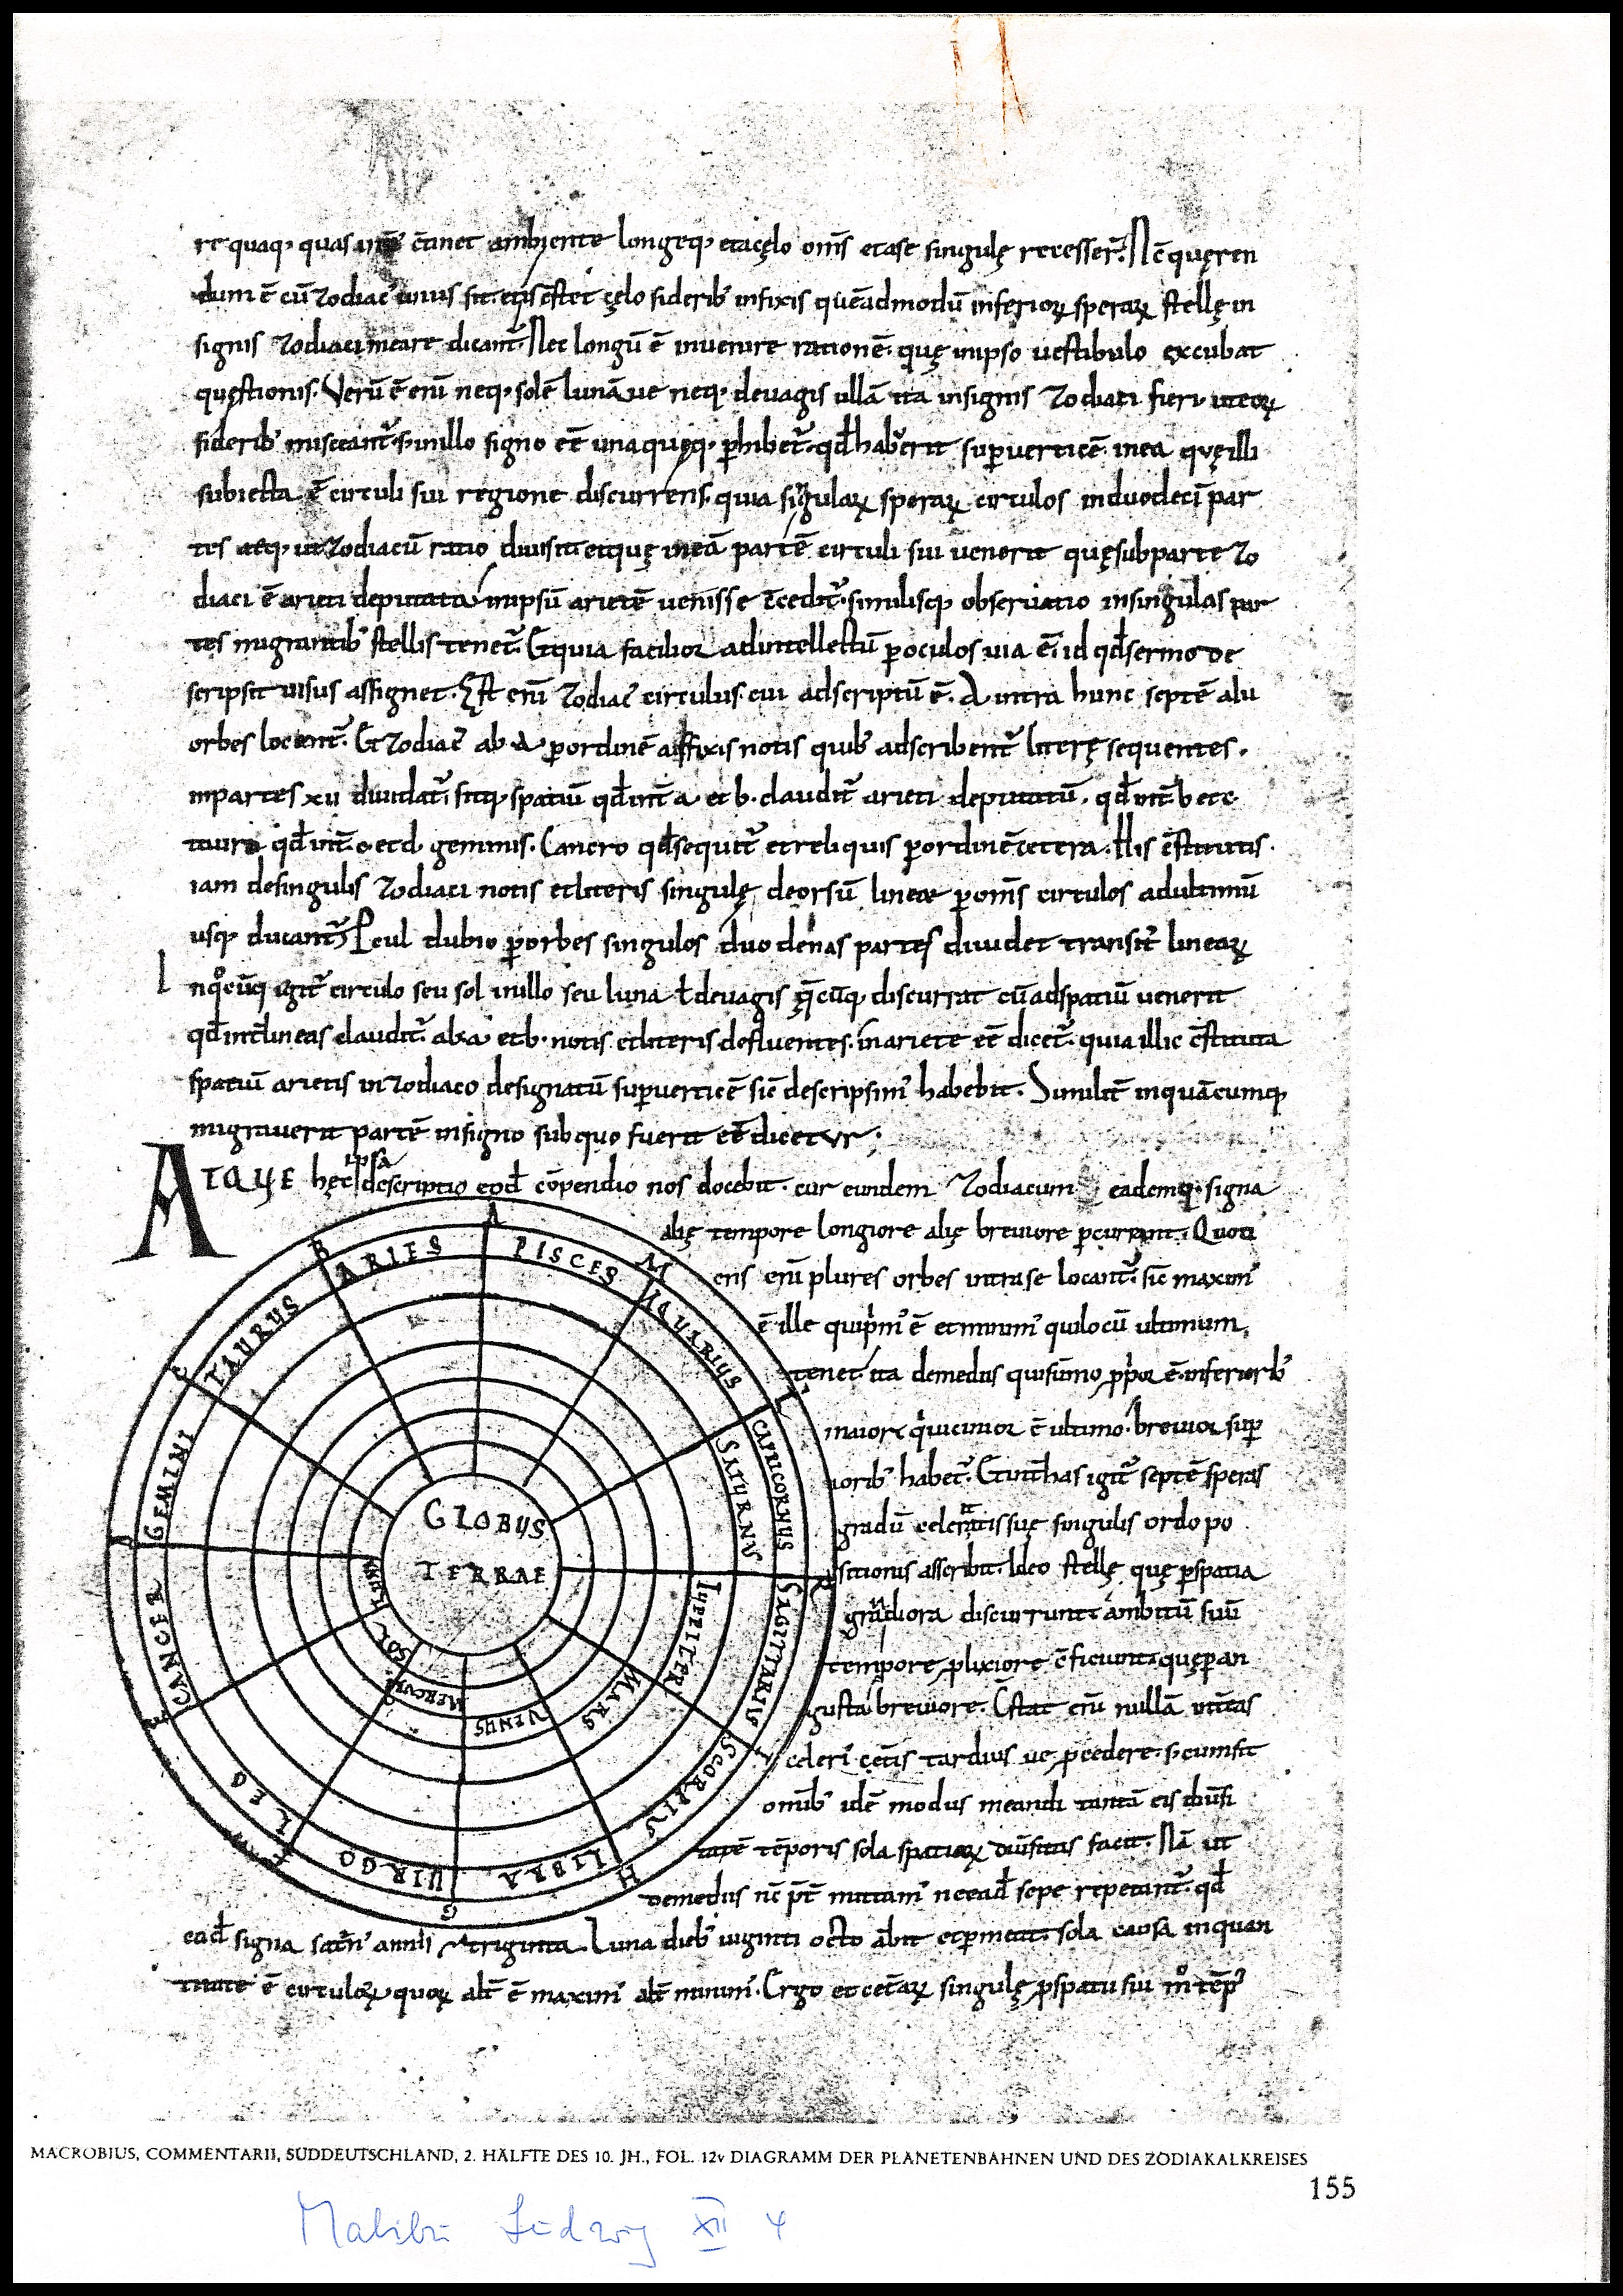 re quaq; quas
c̄tinet ambiente longeq; etacęlo om̄s etase singulę recesser̄. Nc̄ quęren
dum ē cū zodiac̄ unus sit. etis c̄stet cęlo siderib; infixis quēadmodū inferioꝝ speraꝝ stellę in
signis zodiaci meare dicant̄. Nec longū ē inuenire rationē. quę inipso uestibulo excubat
quęstionis. Verū ē enī neq; solē lunā ue neq; deuagis ullā ita insignis zodiaci fieri. uteoꝝ
siderib; misceant̄. s; inillo signo eē̄ unaquęq; ꝑhibet̄. qd̄ habuerit suꝑuerticē. inea quę illi
subiecta ē circuli sui regione discurrens. quia singulaꝝ speraꝝ circulos induodecī par
tes aeq; ut zodiacū ratio diuisit. etquę ineā partē circuli sui uenerit quę subparte zo
diaci ē arieti deputata inipsū arietē uenisse c̄cedit̄. similisq; obseruatio insingulas par
tes migrantib; stellis tenet̄. Et quia facilior adintellectū ꝑoculos uia ē. id qd̄ sermo de
scripsit uisus assignet. Est enī zodiac̄ circulus. cui adscriptū ē. A intra hunc septē alii
orbes locent̄. Et zodiac̄ ab A ꝑordinē affixis notis quib; adscribent̄ literę sequentes.
inpartes xii diuidat̄. sitq; spatiū qd̄ int̄ a et b. claudit̄ arieti deputatū. qd̄ int̄ b et c
tauro qd̄ int̄ c et d. geminis. Cancro qd̄ sequit̄ et reliquis ꝑordinē cetera. His c̄stitutis.
iam desingulis zodiaci notis et literis singulę deorsū lineae ꝑ om̄s circulos adultimū
usq; ducant̄. Pcul dubio ꝑorbes singulos duodenas partes diuidet transit̄ lineaꝝ
Inqͦcūq; igit̄ circulo seu sol inillo seu luna ł deuagis q̄cūq; discurrat cū adspatiū uenerit
qd̄ int̄ lineas claudit̄. ab A et b. notis et literis defluentes. inariete eē̄ dicet̄. quia illic c̄stituta
spatiū arietis inzodiaco designatū suꝑuerticē sic̄ descripsim̄ habebit. Similit̄ inquācumq;
migrauerit partē insigno subquo fuerit eē̄ dicetur;
ATQUE hęc ipsa descriptio eod̄ cōpendio nos docebit. cur eundem zodiacum eademq; signa
alię tempore longiore alię breuiore ꝑcurrunt. Quoti
ens enī plures orbes intrase locant̄. sic̄ maxim̄
ē ille quip̄m̄ ē et minim̄ quilocū ultimum
tenet. ita demediis quisūmo ꝓpior ē. inferiorib;
maior quiuicinior ē ultimo. breuior suꝑ
iorib; habet̄. Et int̄ has igit̄ septē speras
gradū celeritatis suę singulis ordo po
sitionis asscribit. Ideo stellę quę ꝑspatia
grandiora discurrunt ambitū suū
tempore ꝓlixiore c̄ficiunt. quę ꝑan
gusta breuiore. C̄stat enī nullā int̄ eas
celeri cet̄is tardius ue ꝓcedere. s; cumsit
omīb; idē modus meandi tantā eis diūsi
tatē tēporis sola spatioꝝ diūsitas facit. Nā ut
demediis nc̄ p̄t mittam̄ neead̄ sepe repetant̄. qd̄
ead̄ signa satn̄ annis triginta. Luna dieb; uiginti octo ābit et ꝑmeat. sola causa inquan
titate ē circuloꝝ quoꝝ alt̄ ē maxim̄ alt̄ minim̄. Ergo et cet̄aꝝ singulę ꝑspatii sui mͦ tēp̄
A
B
C
D
E
F
G
H
I
K
L
M
ARIES
PISCES
AQUARIUS
CAPRICORNUS
SAGITTARIUS
SCORPIUS
LIBRA
VIRGO
LEO
CANCER
GEMINI
TAURUS
SATURNUS
IUPPITER
MARS
VENUS
MERCURI
SOL
LUNA
GLOBUS
TERRAE
MACROBIUS, COMMENTARII, SÜDDEUTSCHLAND, 2. HÄLFTE DES 10. JH., FOL. 12v DIAGRAMM DER PLANETENBAHNEN UND DES ZODIAKALKREISES
155
Malibu Ludwig XII 4